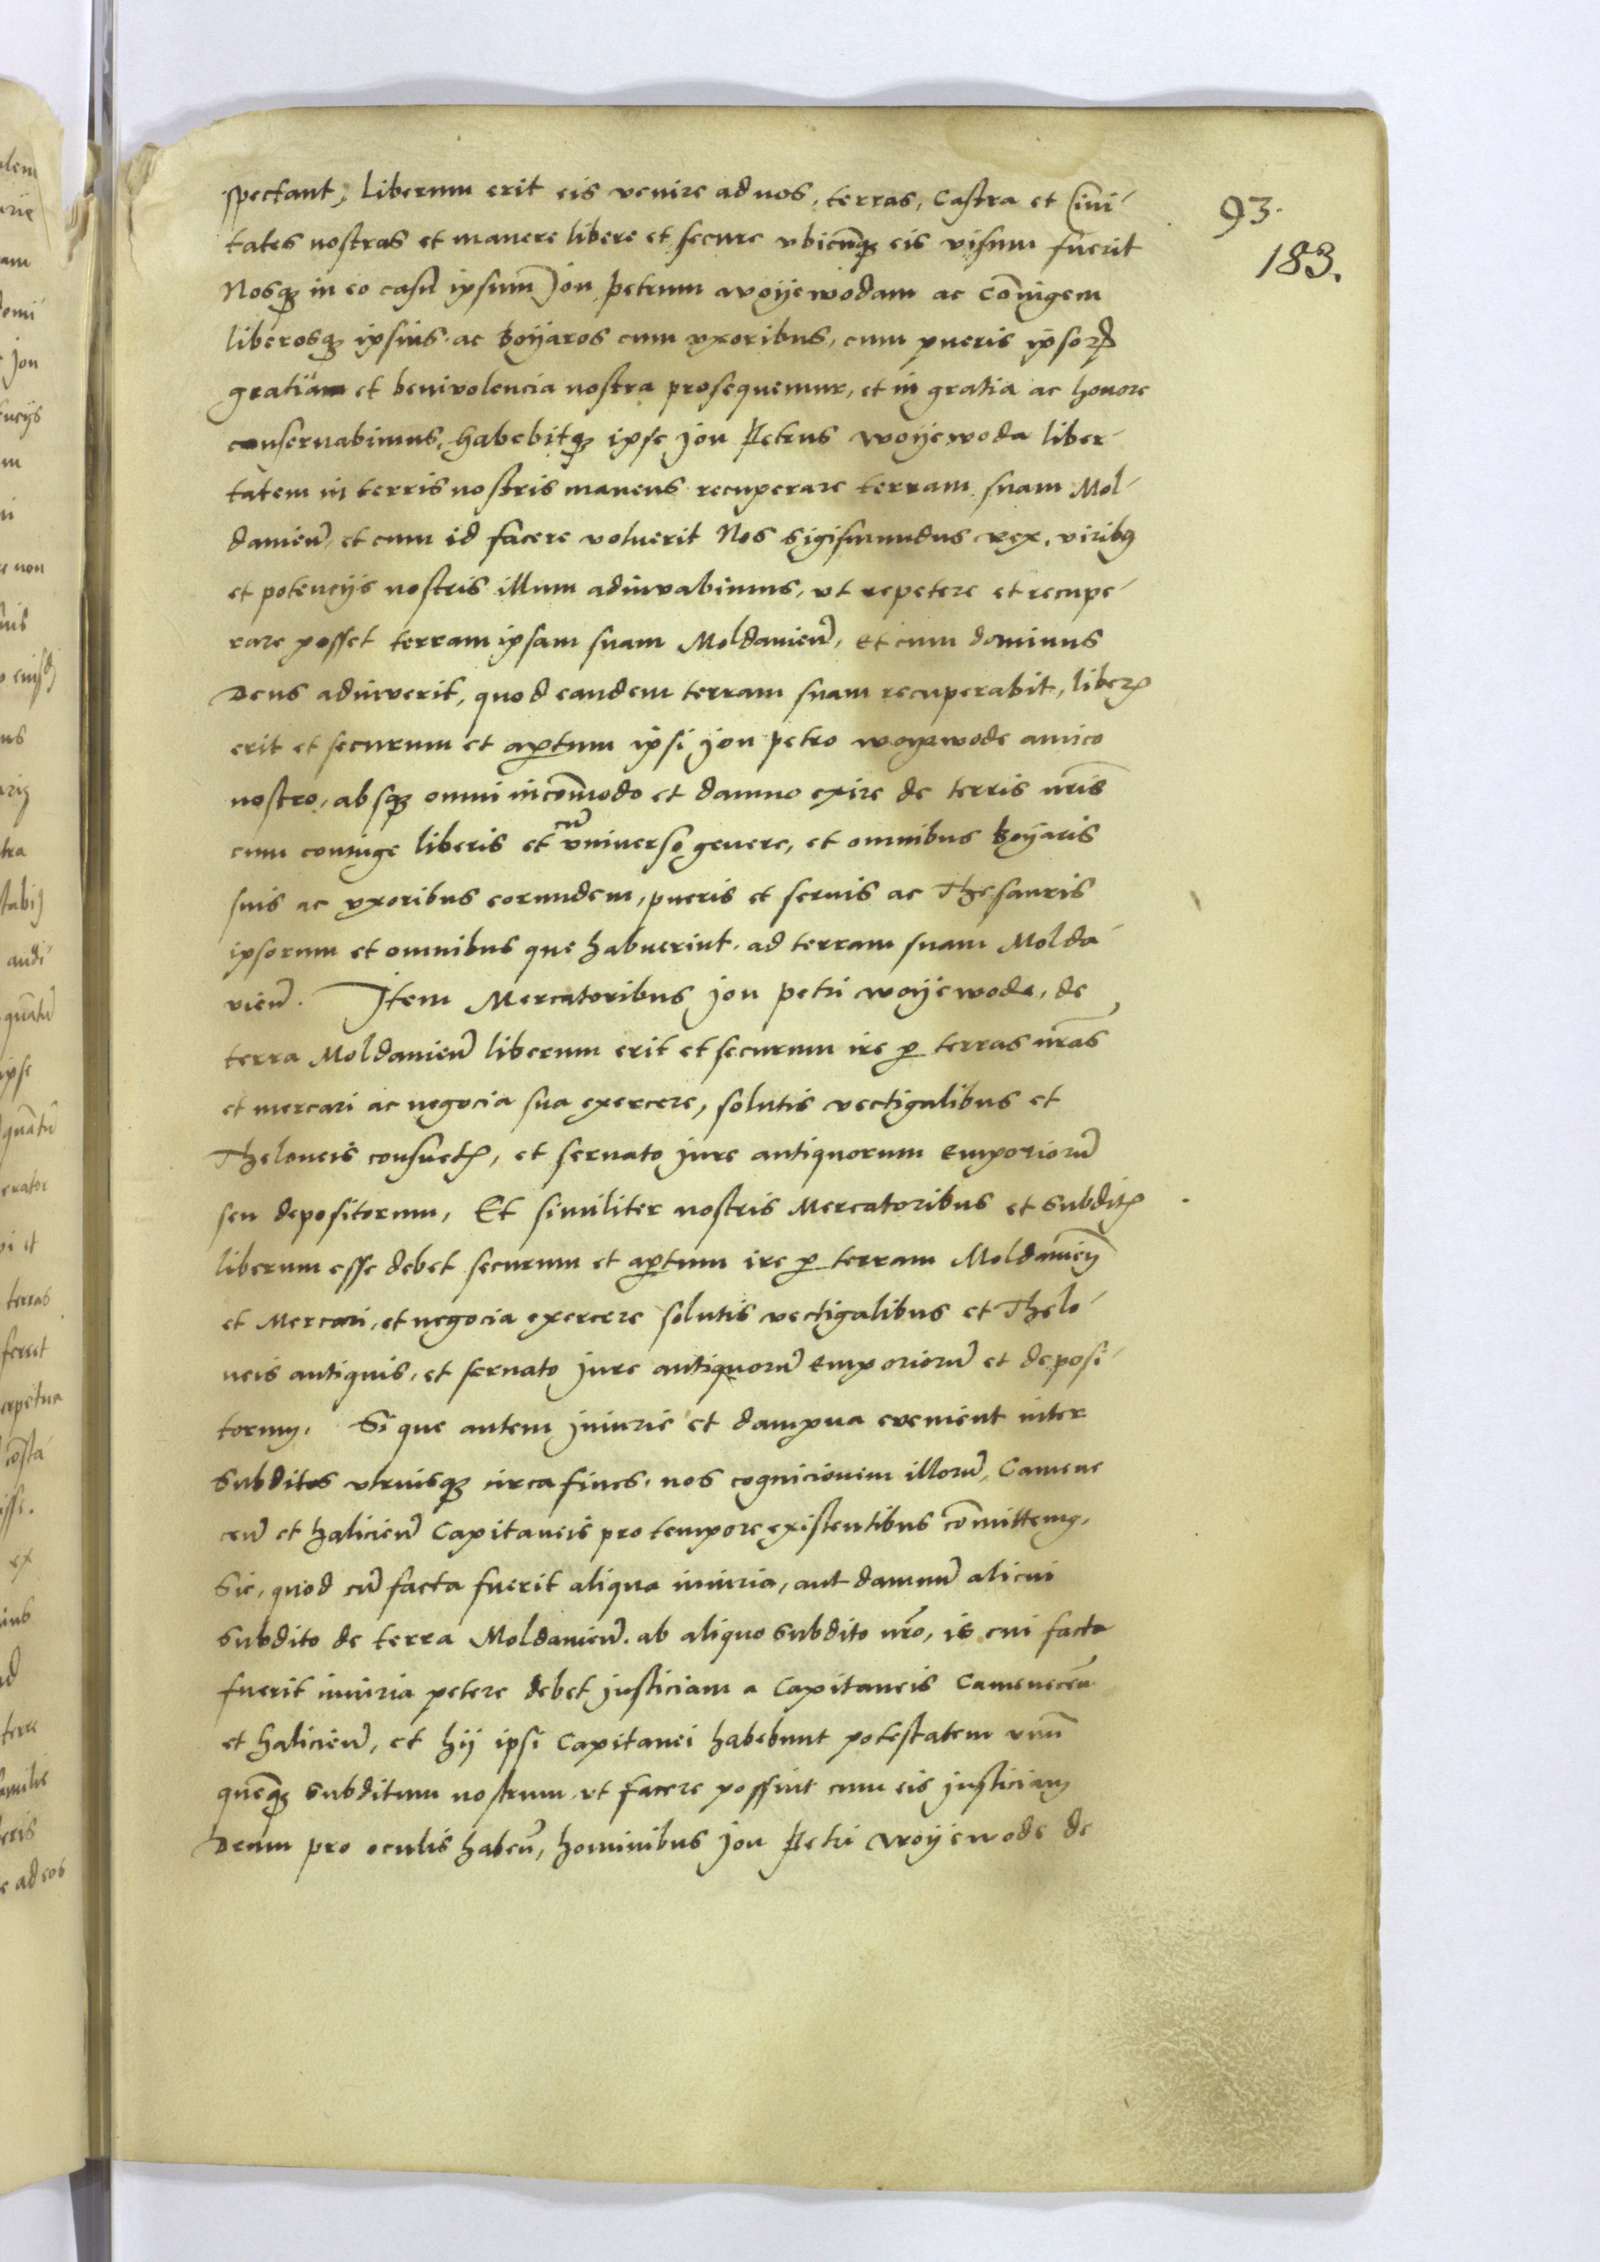 93.
183.
spectant, liberum erit eis venire ad nos, terras, Castra et Civi-
tates nostras et manere libere et secure vbicūq; eis visum fuerit
Nosq; in eo casu ipsum̄ Jon petrum woyewodam ac Cōiugem
liberosq; ipsius ac boyaros cum vxoribus, cum pueris ipsoꝝ
gratia et benivolencia nostra prosequemur, et in gratia ac honore
conseruabimus, habebitq; ipse Jon Petrus woyewoda liber-
tatem in terris nostris manens recuperare terram suam Mol-
dauien̄, et cum id facere voluerit Nos Sigismundus rex, viribꝰ
et potencijs nostris illum adiuvabimus, vt repetere et recupe-
rare posset terram ipsam suam Moldauien̄, Et cum dominus
Deus adiuverit, quod eandem terram suam recuperabit, liberꝝ
erit et securum et aꝑtum ipsi Jon petro woyewode amico
nostro, absq; omni incōmodo et damno exire de terris nr̄is
cum coniuge liberis et cū vniverso genere, et omnibus boyaris
suis ac vxoribus eorundem, pueris et seruis ac Thesauris
ipsorum et omnibus que habuerint, ad terram suam Molda-
vien̄. Item Mercatoribus Jon petri woyewode, de
terra Moldauien̄ liberum erit et securum ire ꝑ terras nr̄as
et mercari ac negocia sua exercere, solutis vectigalibus et
Theloneis consuetꝭ, et seruato jure antiquorum emporiorū
seu depositorum, Et similiter nostris Mercatoribus et subditꝭ
liberum esse debet securum et aꝑtum ire ꝑ terram Moldauien̄
et Mercari, et negocia exercere solutis vectigalibus et Thelo-
neis antiquis, et seruato jure antiquorū emporiorū et deposi-
torum. Si que autem Jniurie et dampna evenient inter
subditos vtriusq; circa fines, nos cognicionem illorū, Camene
cen̄ et halicien̄ Capitaneis pro tempore existentibus cōmittemꝰ,
Sic, quod cū facta fuerit aliqua iniuria, aut damnū alicui
subdito de terra Moldauien̄. ab aliquo subdito nr̄o, is cui facta
fuerit iniuria petere debet justiciam a Capitaneis Camenecen̄
et halicien̄, et hij ipsi Capitanei habebunt potestatem vnū
quēq; subditum nostrum vt facere possint cum eis justiciam
Deum pro oculis haben̄, hominibus Jon Petri woyewode de